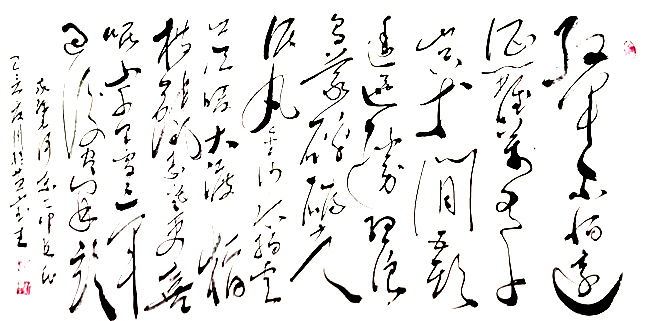 红军不怕远
征难万水千
山只等闲五岭
逶迤腾细浪
乌蒙磅礴走
泥丸金沙水拍云
崖暖大渡桥
横铁索寒更喜
岷山千里雪三军
过后尽开颜